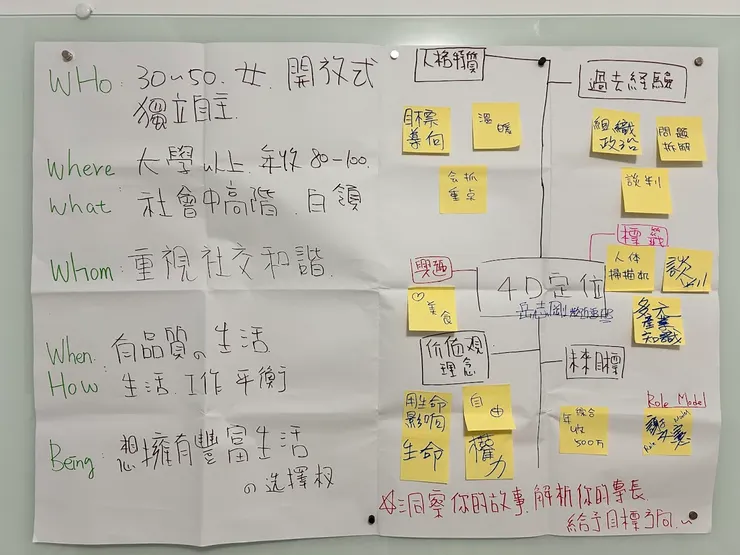 WHo: 30~50. 女. 開放式
獨立自主.
Where: 大學以上. 年收 80-100.
What: 社會中高階. 白領
Whom: 重視社交和諧.
When: 有品質の生活.
How: 生活.工作平衡
Being: 想擁有豐富生活
の选擇权
人格特質
目標
導向
溫
暖
会抓
重点
過去經驗
組織
政治
問題
拆解
談判
標籤
人体
掃描机
談判
多元
產業
知識
興趣
♡
美食
4D定位
岳志剛
价值观
理念
用生命
影响
生命
自由
權力
未來目標
綜合
年收
500万
Role Model
☆洞察你的故事.解析你的專長.
給予目標方向.~